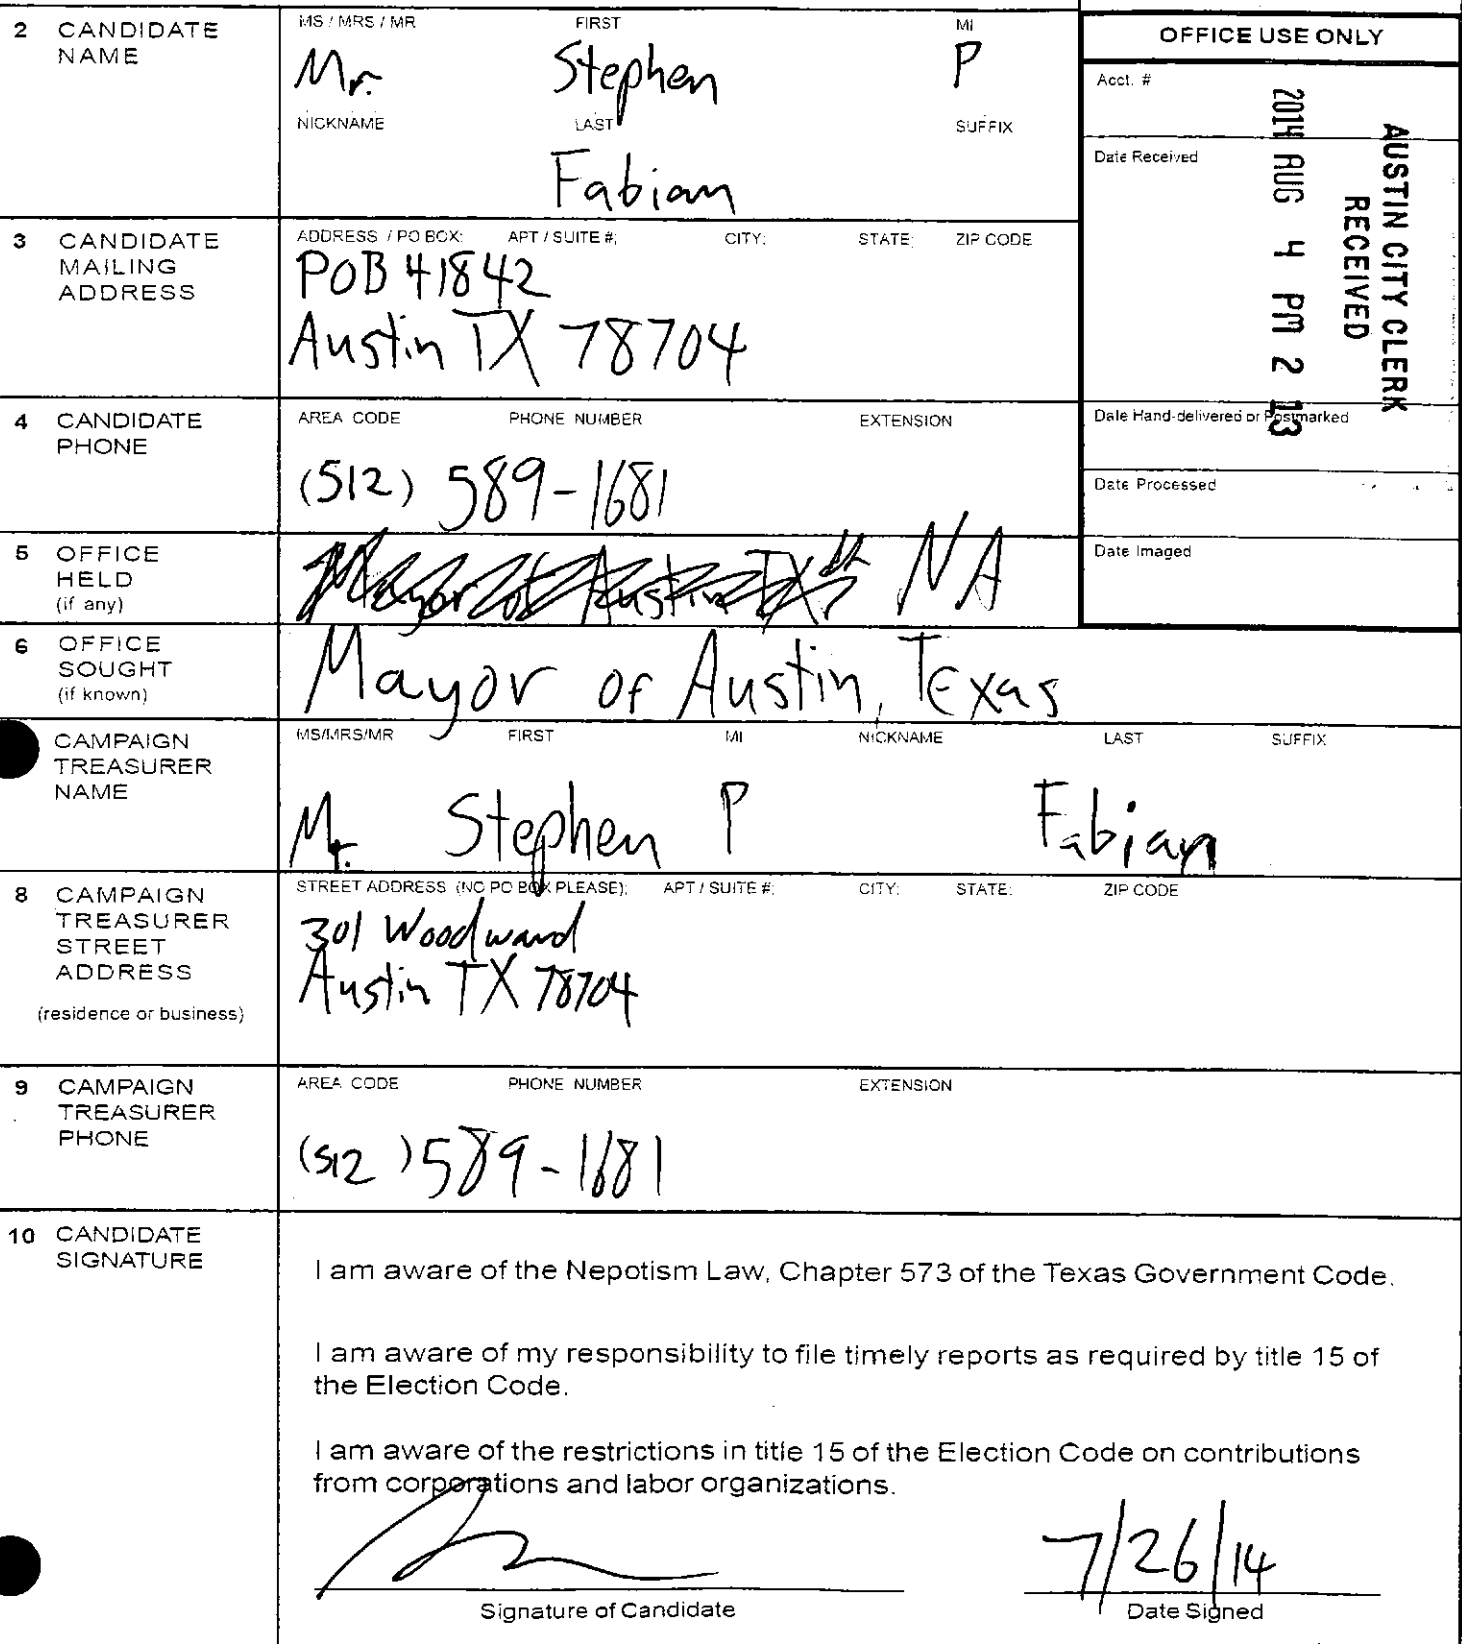 2 CANDIDATE NAME
MS / MRS / MR FIRST MI
Mr. Stephen P
NICKNAME LAST SUFFIX
Fabian
OFFICE USE ONLY
Acct. #
Date Received
AUSTIN CITY CLERK
RECEIVED
2014 AUG 4 PM 2 13
Date Hand-delivered or Postmarked
Date Processed
Date Imaged
3 CANDIDATE MAILING ADDRESS
ADDRESS / PO BOX; APT / SUITE #; CITY; STATE; ZIP CODE
POB 41842
Austin TX 78704
4 CANDIDATE PHONE
AREA CODE PHONE NUMBER EXTENSION
(512) 589-1681
5 OFFICE HELD
(if any)
Mayor of Austin TX NA
6 OFFICE SOUGHT
(if known)
Mayor of Austin, Texas
CAMPAIGN TREASURER NAME
MS/MRS/MR FIRST MI NICKNAME LAST SUFFIX
Mr. Stephen P Fabian
8 CAMPAIGN TREASURER STREET ADDRESS
(residence or business)
STREET ADDRESS (NO PO BOX PLEASE); APT / SUITE #; CITY; STATE; ZIP CODE
301 Woodward
Austin TX 78704
9 CAMPAIGN TREASURER PHONE
AREA CODE PHONE NUMBER EXTENSION
(512) 589-1681
10 CANDIDATE SIGNATURE
I am aware of the Nepotism Law, Chapter 573 of the Texas Government Code.
I am aware of my responsibility to file timely reports as required by title 15 of
the Election Code.
I am aware of the restrictions in title 15 of the Election Code on contributions
from corporations and labor organizations.
7/26/14
Signature of Candidate Date Signed